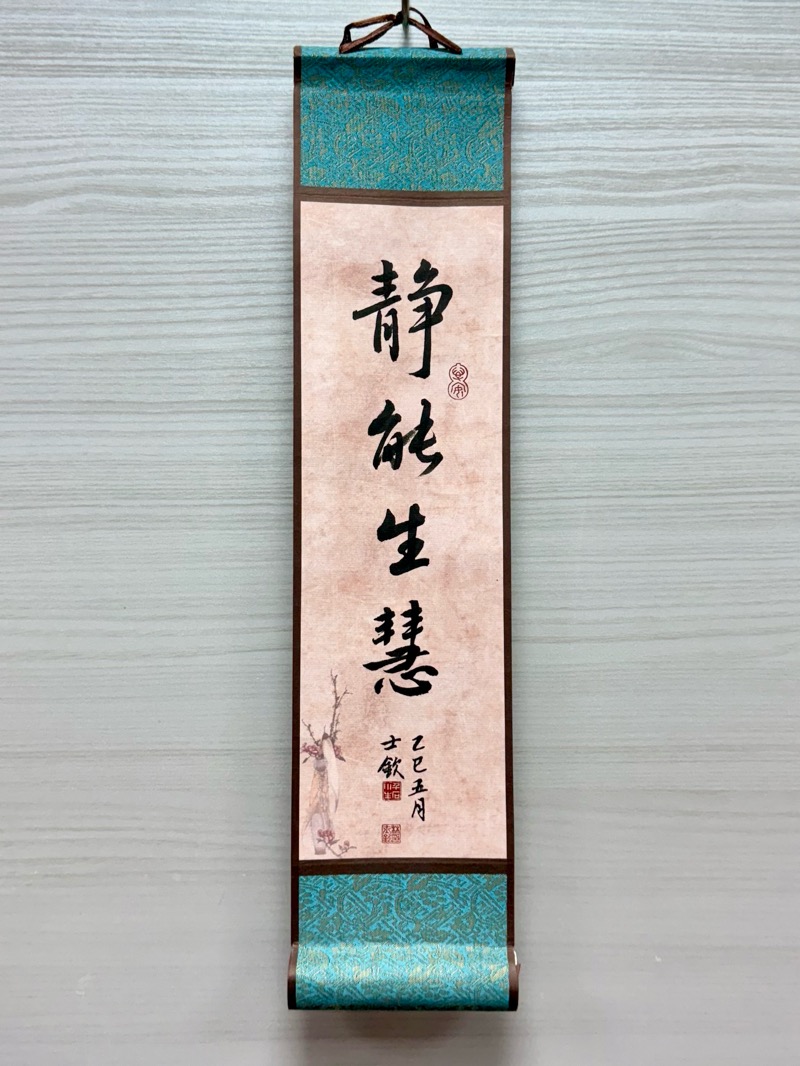 静能生慧
乙巳五月
士钦